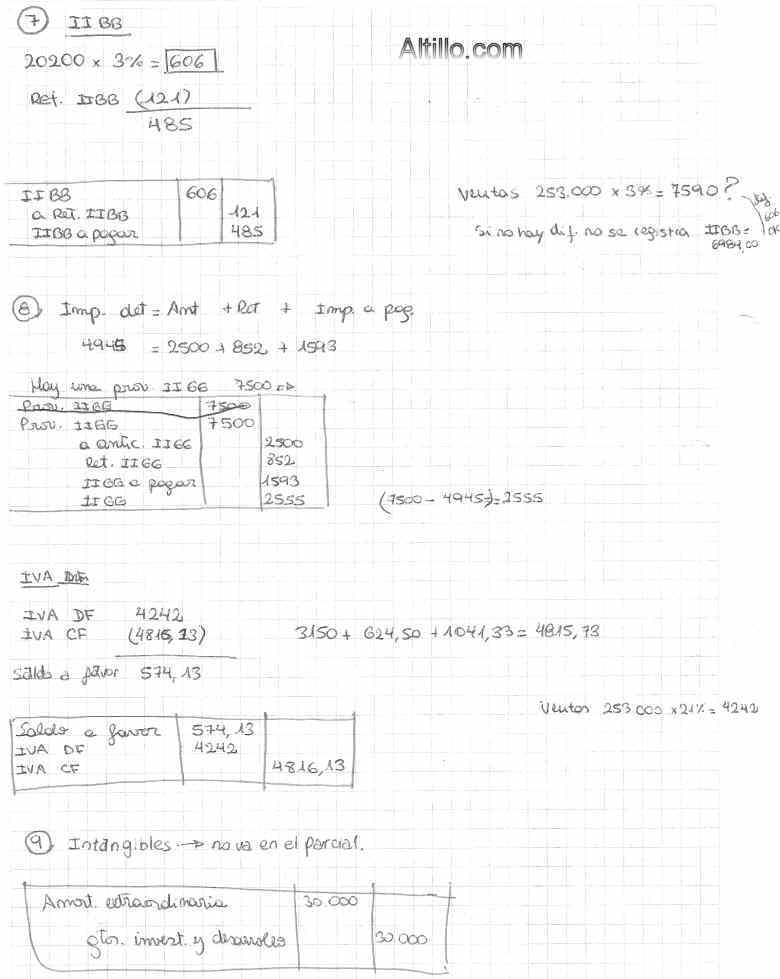 7 IIBB
Altillo.com
20200 x 3% = 606
Ret. IIBB (121)
485
IIBB 606
a Ret. IIBB 121
IIBB a pagar 485
Ventas 253.000 x 3% = 7590?
Si no hay dif. no se registra IIBB =
606
6984,00
8) Imp. det = Ant + Ret + Imp. a pag.
4945 = 2500 + 852 + 1593
Hay una prov IIGG 7500 =>
Prov. IIGG 7500
Prov. IIGG 7500
a antic. IIGG 2500
Ret. IIGG 852
IIGG a pagar 1593
IIGG 2555
(7500 - 4945) = 2555
IVA
IVA DF 4242
IVA CF (4816,13)
3150 + 624,50 + 1041,33 = 4815,73
Saldo a favor 574,13
Ventas 253.000 x 21% = 4242
Saldo a favor 574,13
IVA DF 4242
IVA CF 4816,13
9) Intangibles -> no va en el parcial.
Amort. extraordinaria 30.000
gtos. invest. y desarrollo 30.000